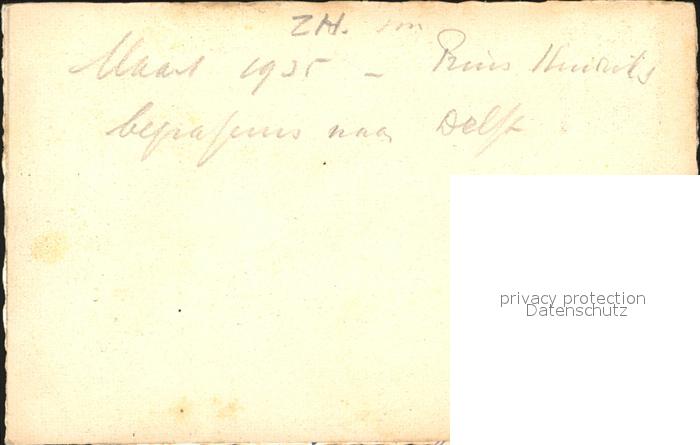 ZH.
Maart 1935 – Prins Hendriks
begrafenis naar Delft
privacy protection
Datenschutz